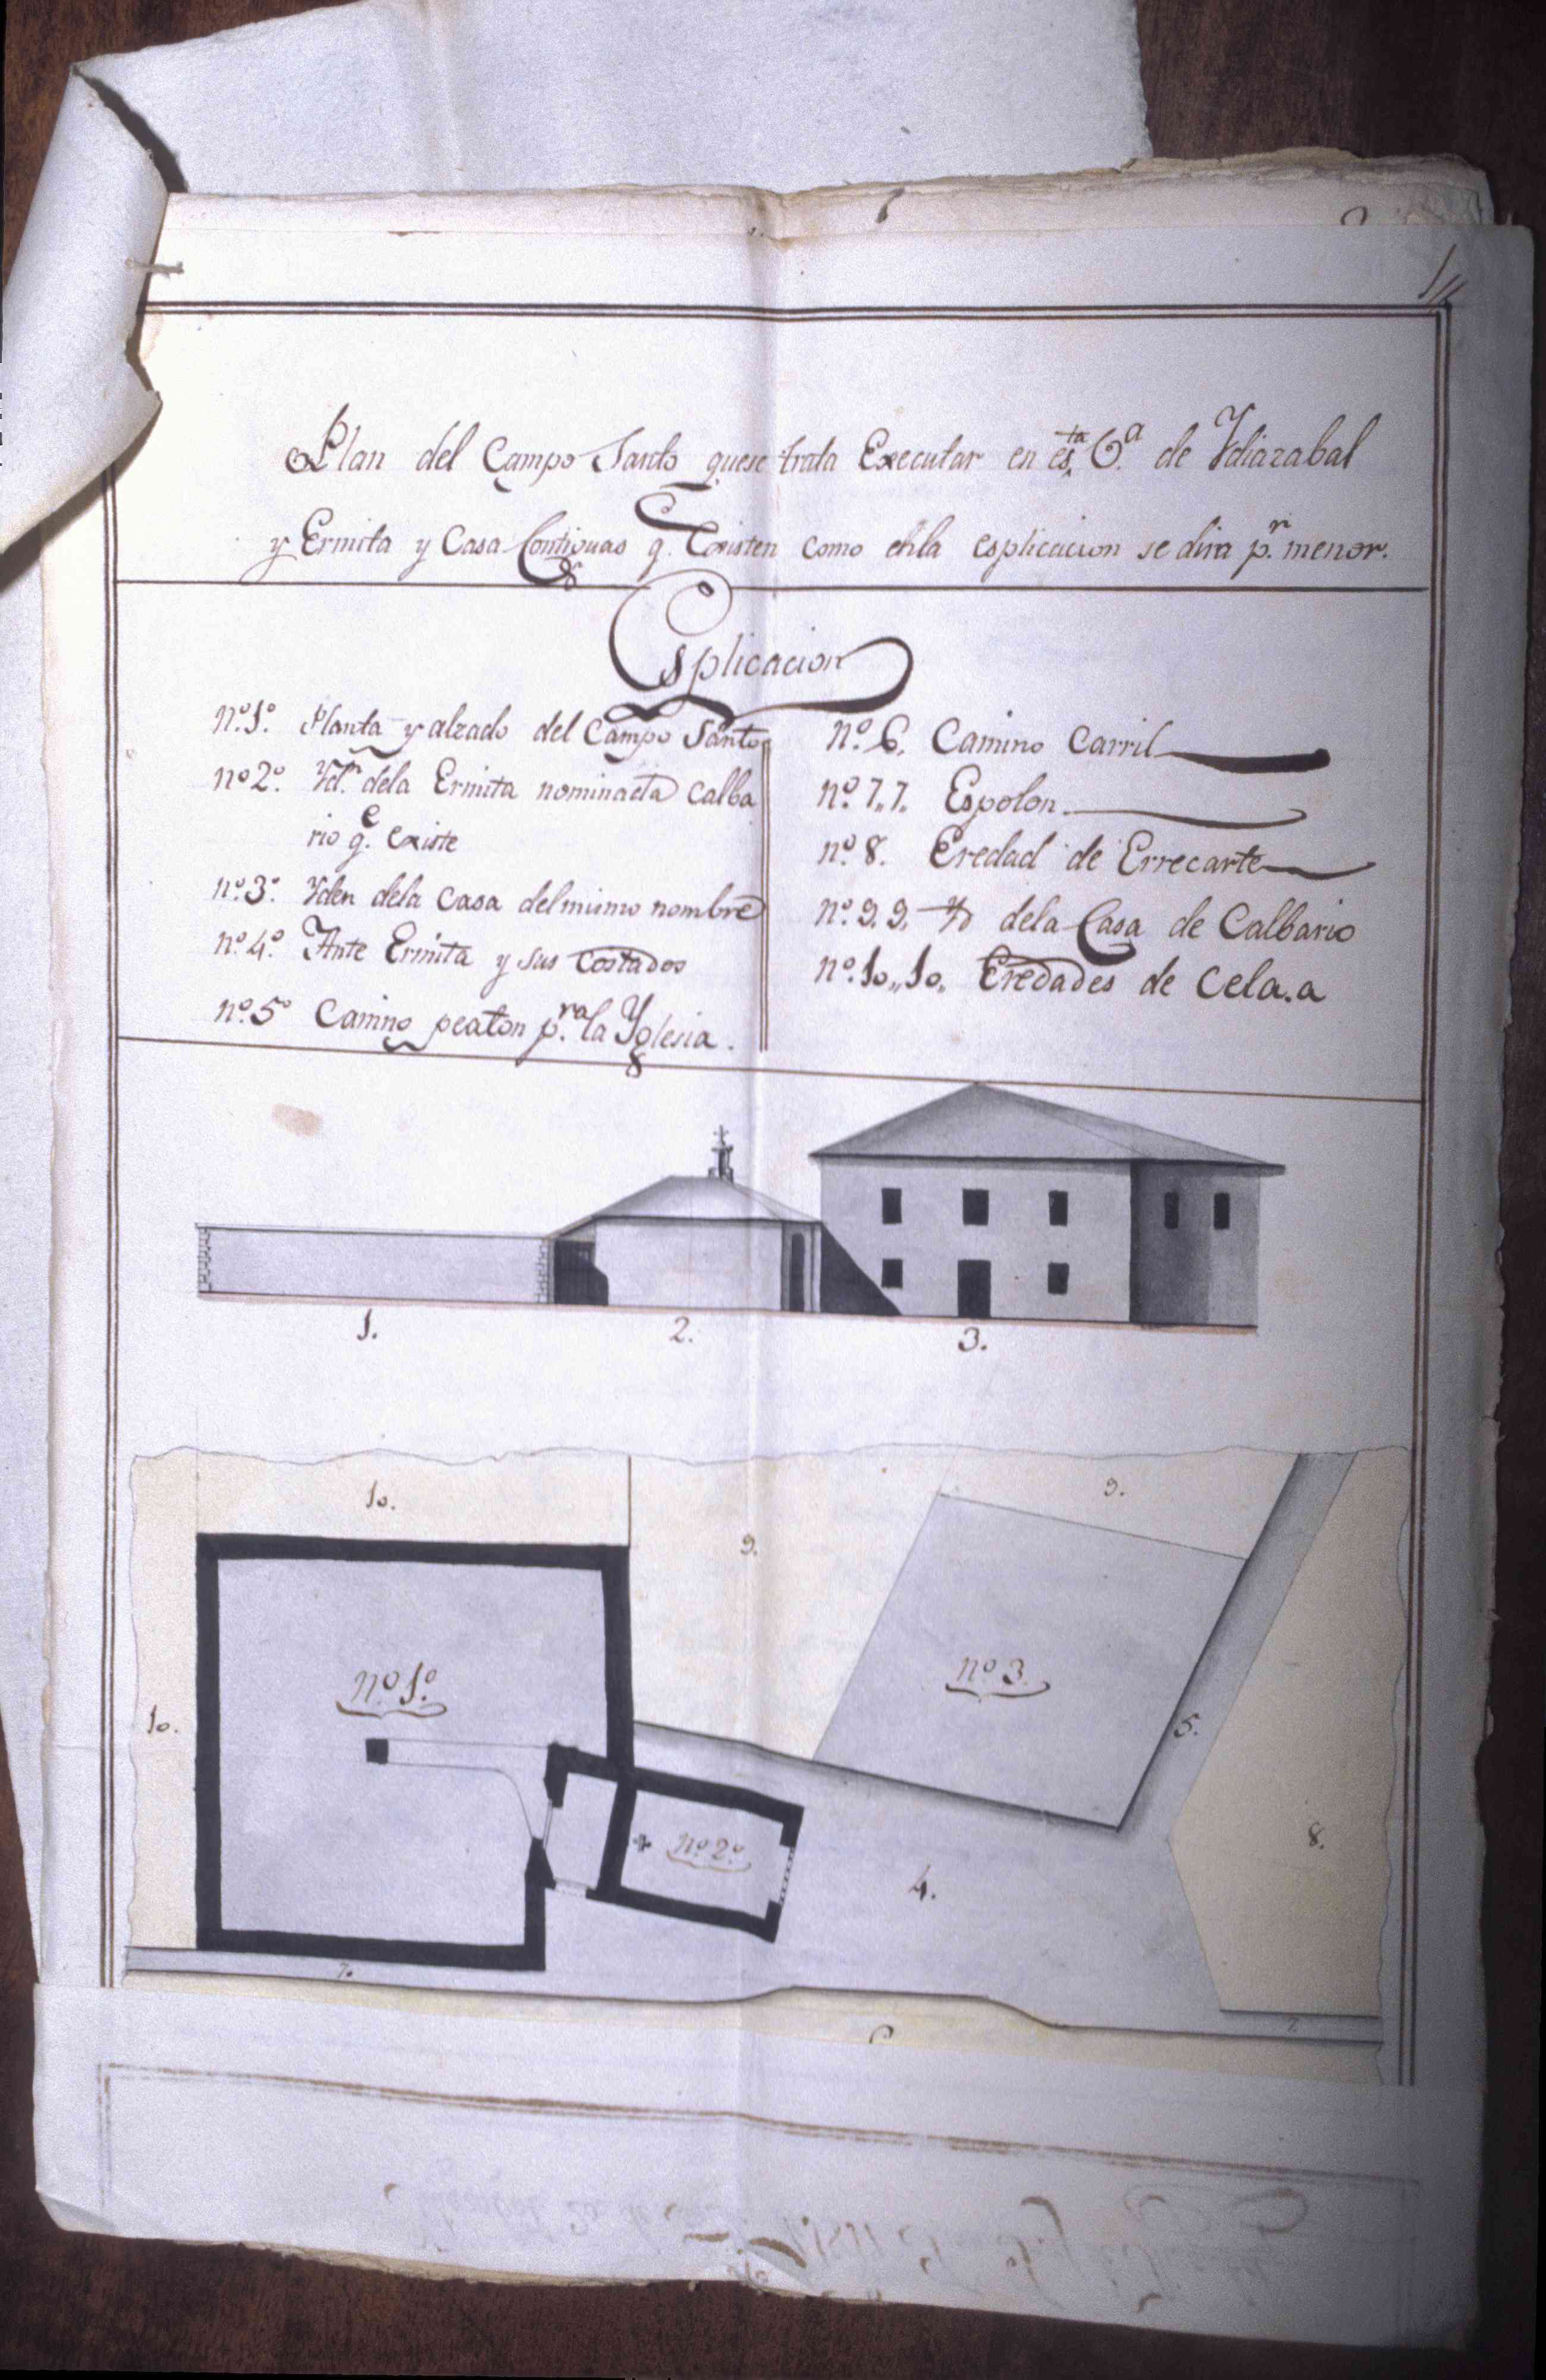 Plan del Campo Santo quese trata Executar en esta V.a de Ydiazabal
y Ermita y Casa Contiguas q. Existen como enla esplicacion se dira p.r menor.
Esplicacion
nº.1º. Planta y alzado del Campo Santo
nº2º. Yd.n dela Ermita nominada Calba
rio q.e existe
nº.3º. Yden dela Casa delmismo nombre
nº.4º. Ante Ermita y sus Costados
nº.5º Camino peaton p.ra la Yglesia.
nº.6. Camino Carril
nº.7,,7. Espolon.
nº.8. Eredad de Errecarte
nº.9.9. Yd dela Casa de Calbario
nº.10,,10,, Eredades de Cela.a
1.
2.
3.
10.
9.
9.
nº.1º.
nº 3.
10.
5.
nº.2º.
8.
4.
7.
7.
6